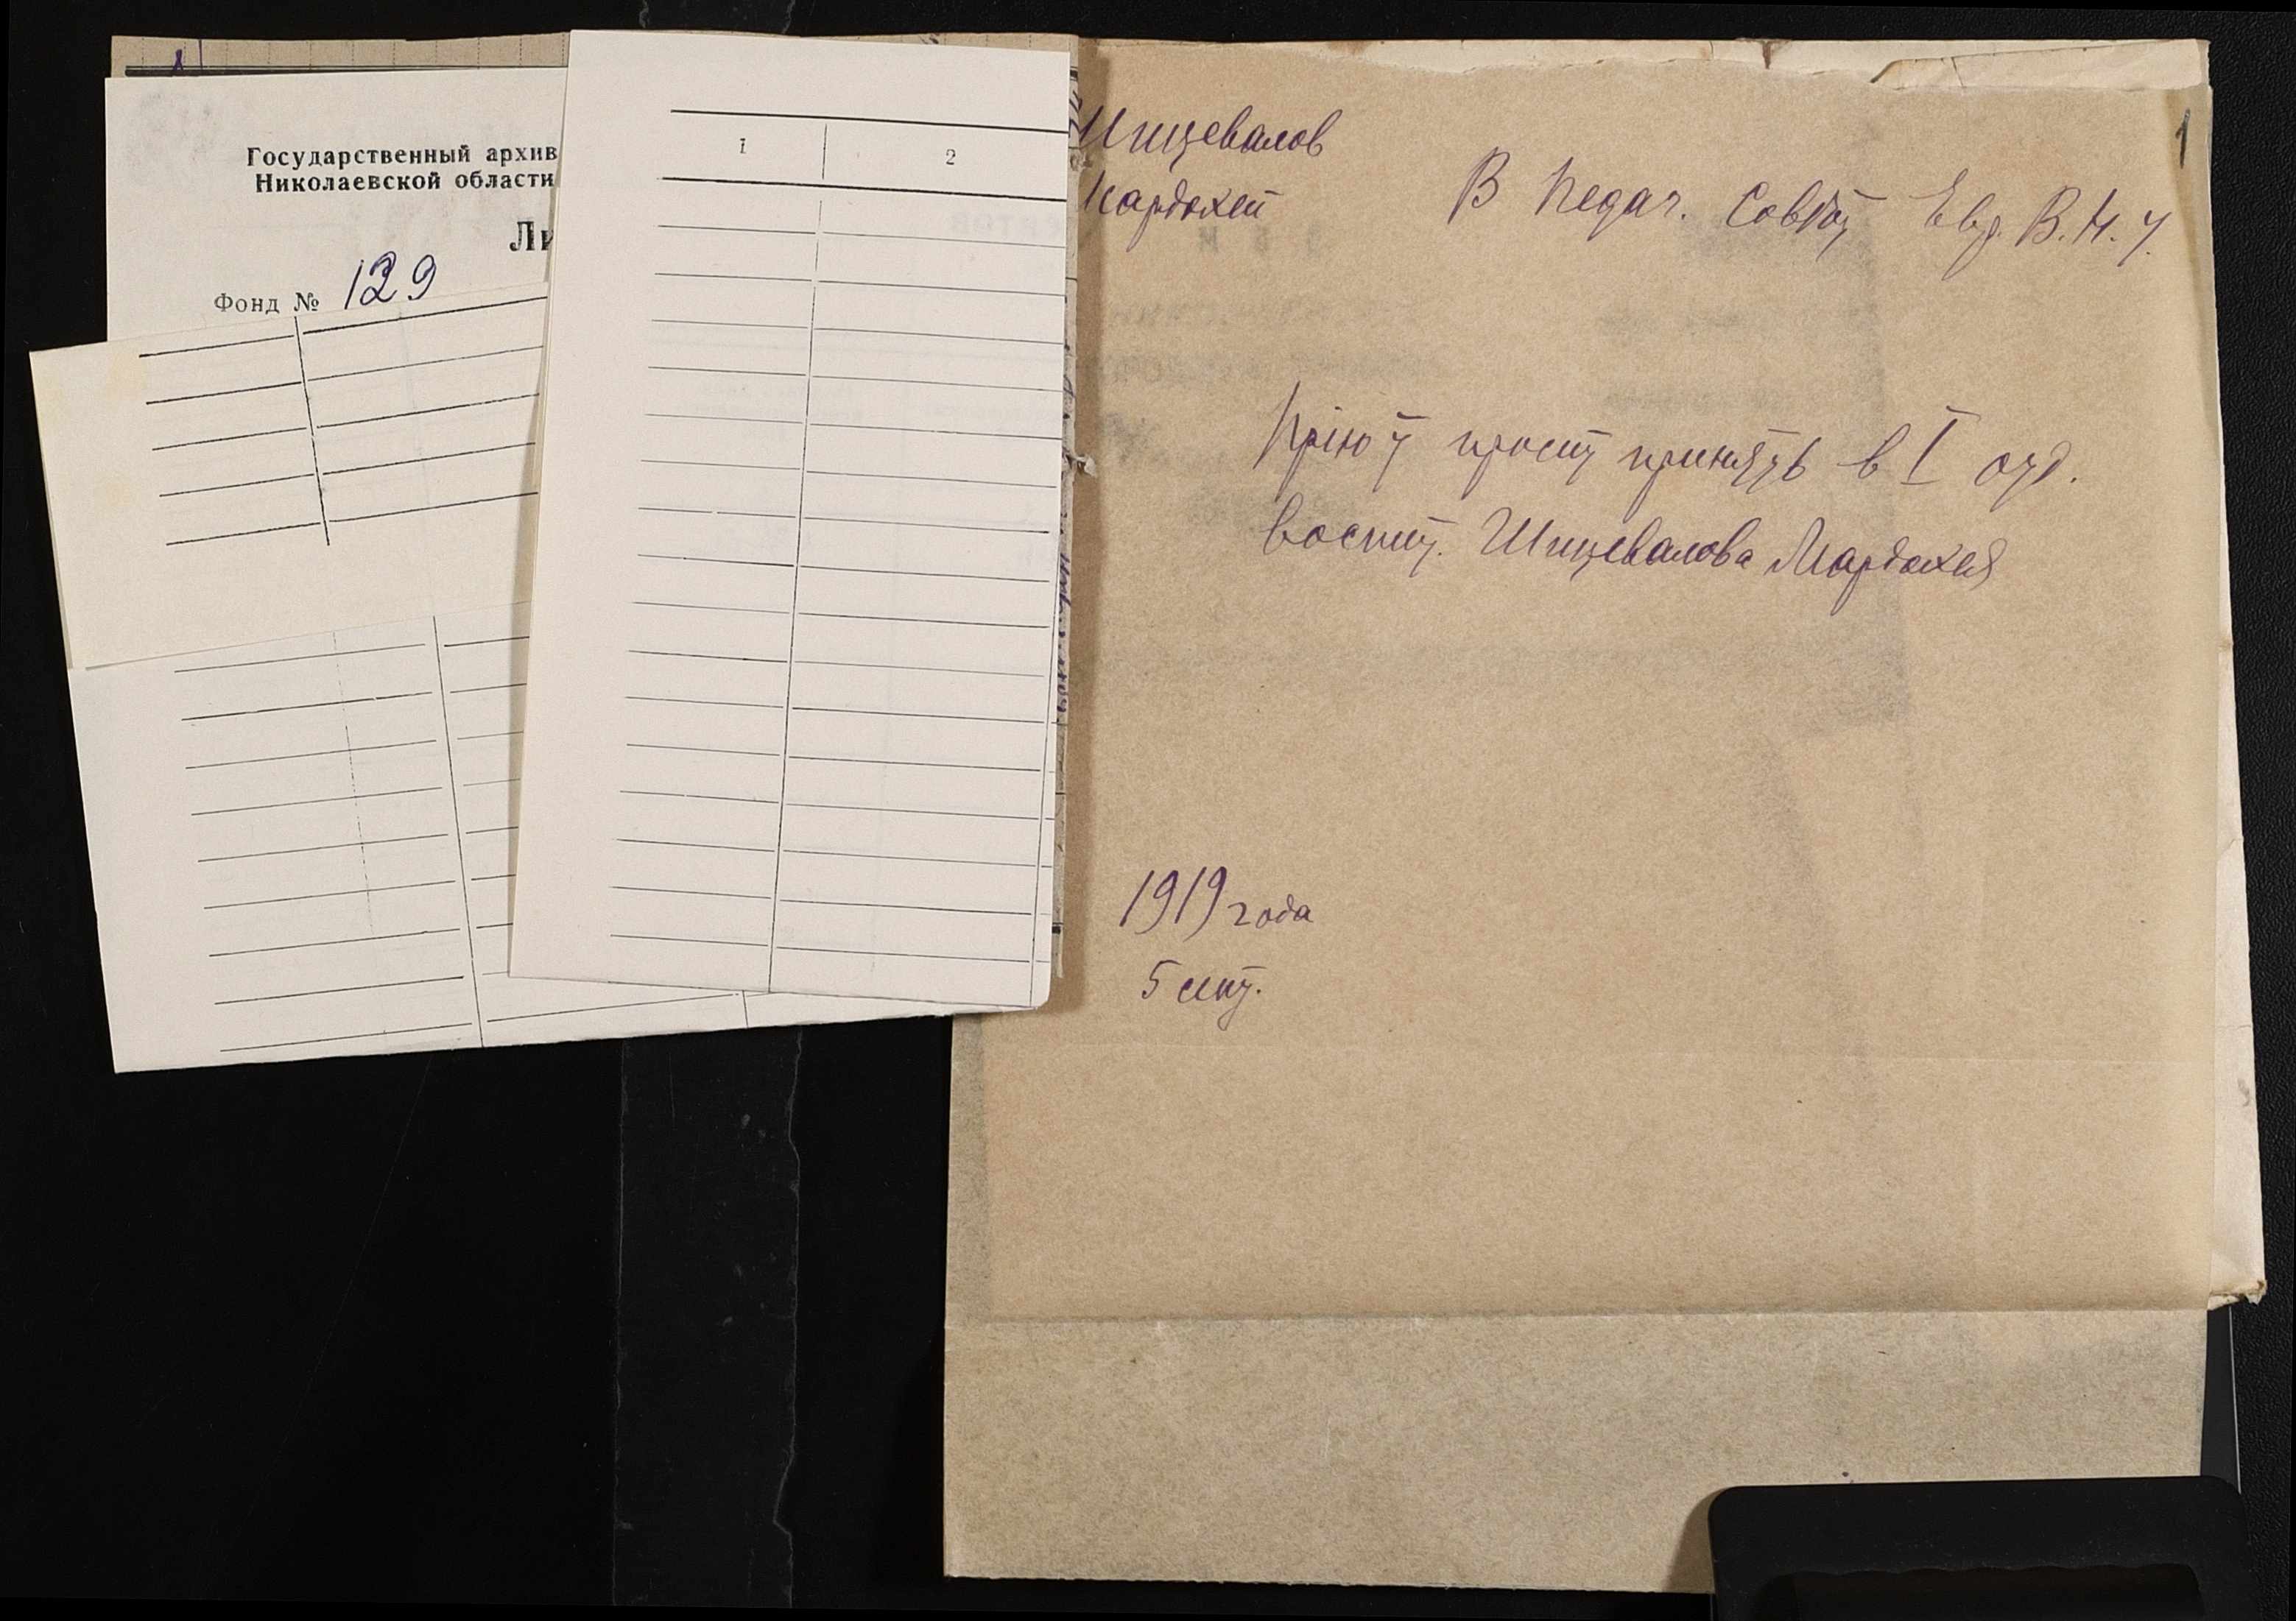 Государственный архив
Николаевской области
Ли
Фонд № 129
1
2
1
Шицевалов
Мардохей
В Педаг. Совѣт Евр. В. Н. У.
Пріют просит принять в I отд.
воспит. Шицевалова Мардохея
1919 года
5 сент.